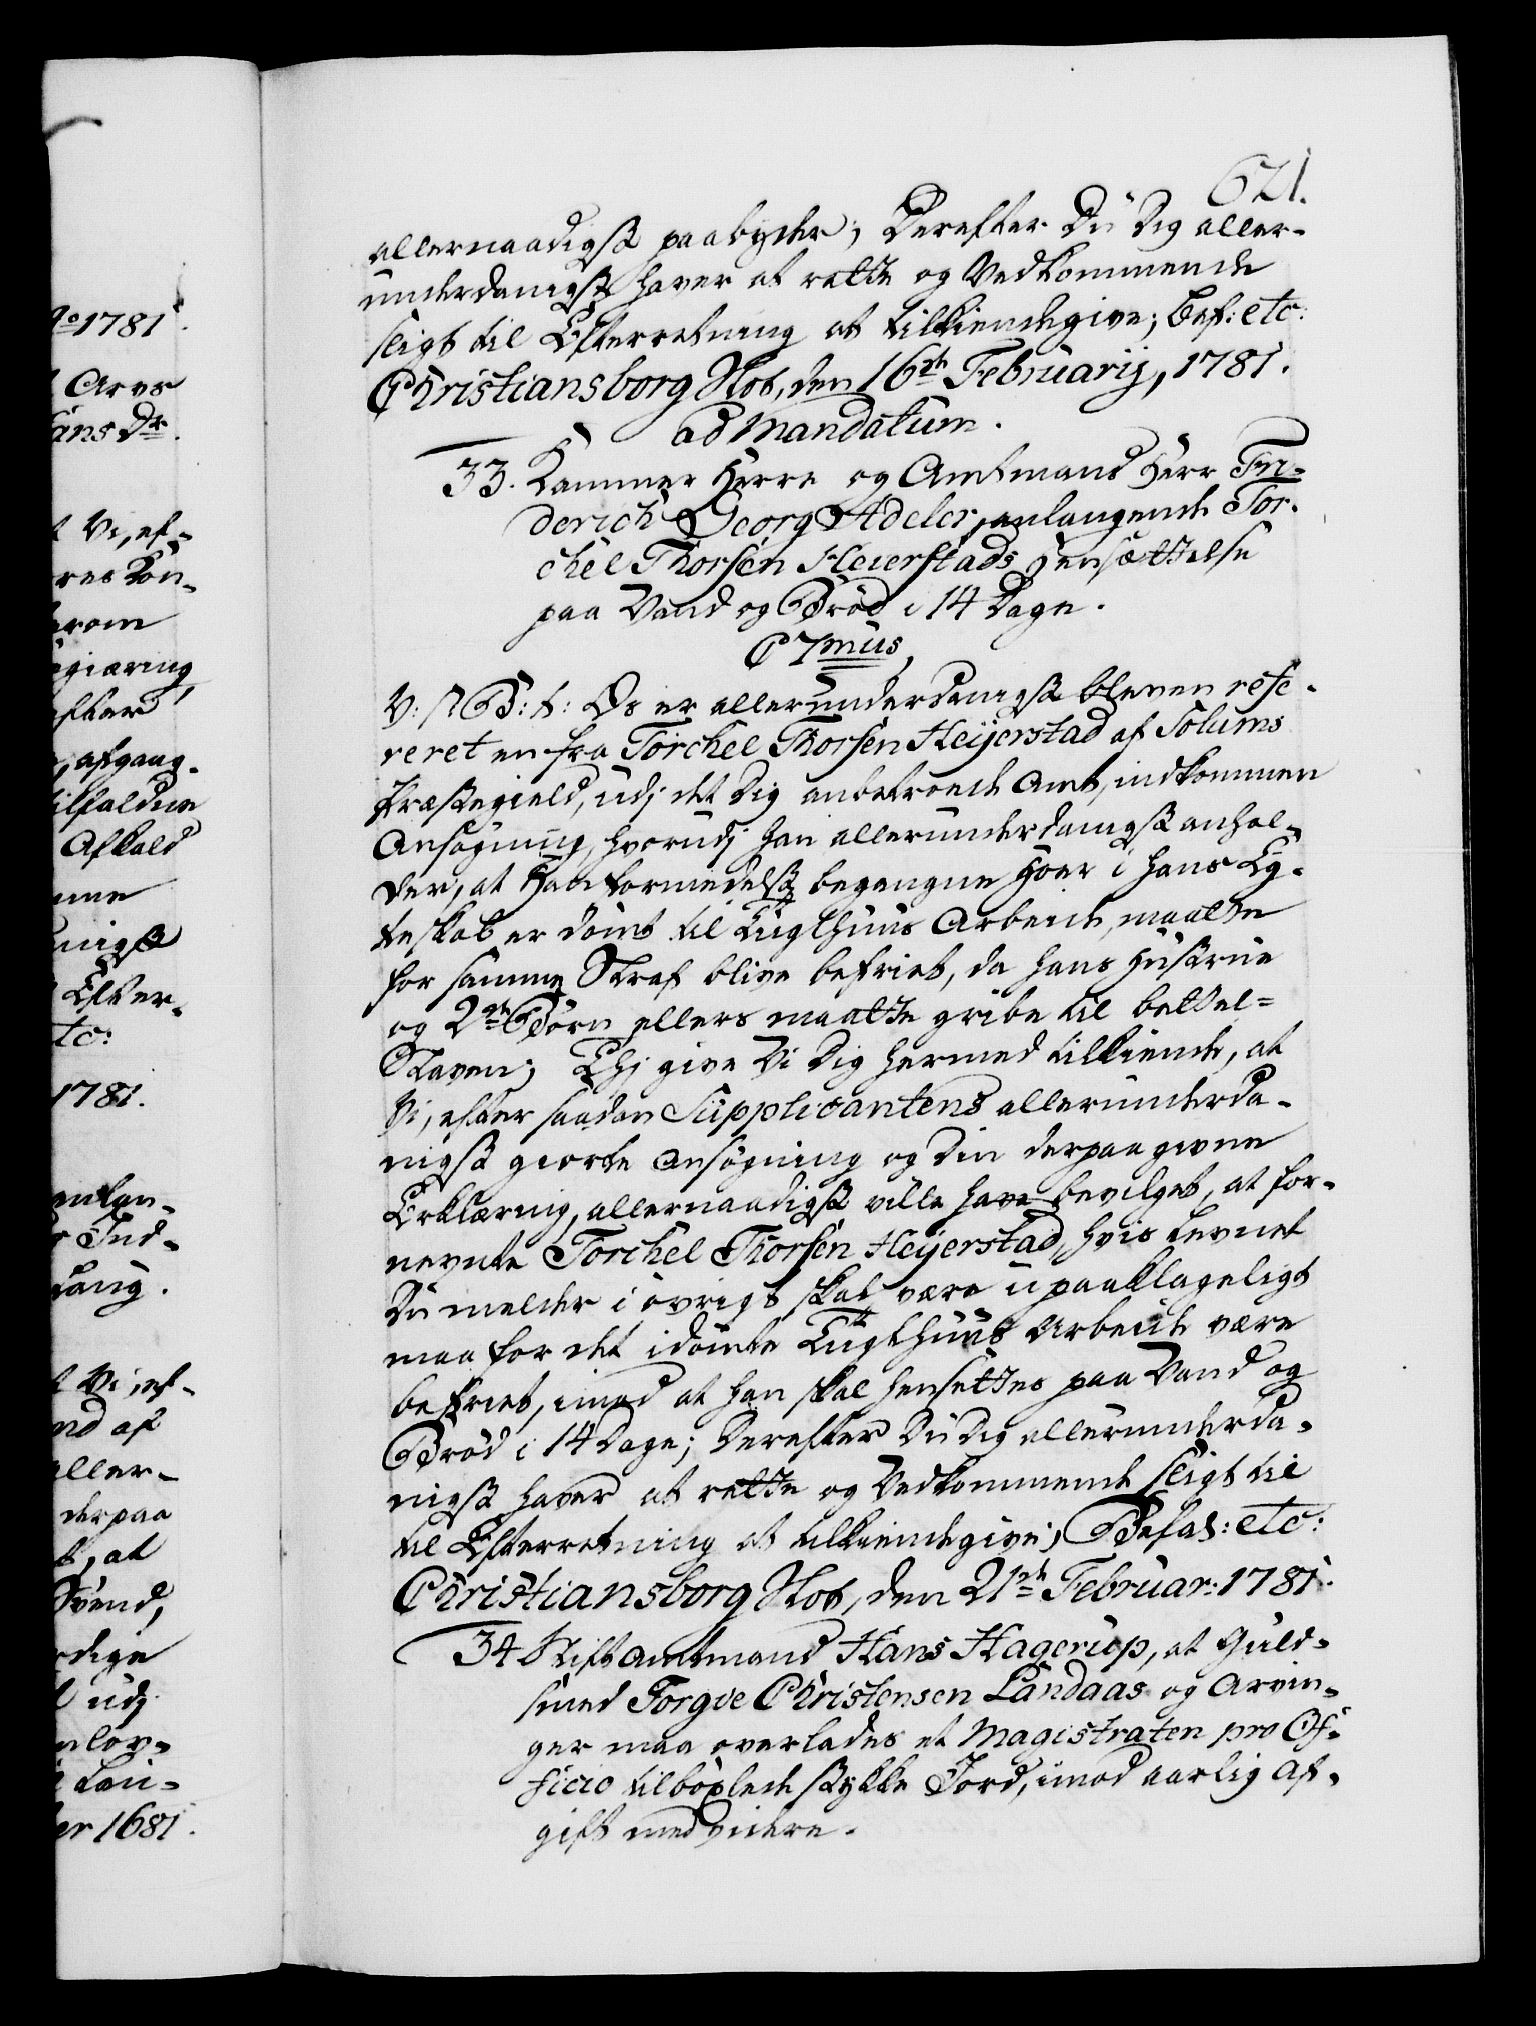 621.
allernaadigst paabyder; Derefter Du Dig aller-
underdanigst haver at rette og Vedkommende
sligt til Efterretning at tilkiendegive; Bef: etc:
Christiansborg Slot, den 16de Februarij, 1781.
ad Mandatum.
33. Kammer Herre og Amtmand Herr Fri-
derich Georg Adeler, anlangende Tor-
chel Thorsen Heierstads Hensættelse
paa Vand og Brød i 14 Dage.
C 7mus,
V: S: G: T: Os er allerunderdanigst bleven refe-
reret en fra Torchel Thorsen Heijerstad af Solums
Præstegield, udj det Dig anbetroede Amt, indkommen
Ansøgning, hvorudj han allerunderdanigst anhol-
der, at Ham formedelst begangne Hoer i hans Eg-
teskab er dømt til Tugthuus Arbeide, maatte
for samme Straf blive befriet, da hans Hustrue
og 2de Børn ellers maatte gribe til bettel-
Staven; Thj give Vi Dig hermed tilkiende, at
Vi, efter saadan Supplicantens allerunderda-
nigst giorte Ansøgning og Din derpaa givne
Erklæring, allernaadigst ville have bevilget, at for-
nevnte Torchel Thorsen Heijerstad, hvis Levnet
Du melder i øvrigt skal være upaaklageligt
maa for det idømte Tugthuus Arbeide være
befriet, imod at han skal hensettes paa Vand og
Brød i 14 Dage; Derefter Du Dig allerunderda-
nigst haver at rette og Vedkommende sligt til
til Efterretning at tilkiendegive; Befal: etc:
Christiansborg Slot, den 21de Februar: 1781.
34 Stiftamtmand Hans Hagerup, at Guld-
smed Torgve Christensen Landaas og Arvin-
ger maa overlades et Magistraten pro Of-
ficio tilbøxlede stykke Jord, imod aarlig Af-
gift med videre.
No 1781.
Arvs
ans Dr.
Vi, ef-
res Kon-
erom
giæring
efter
, afgaag-
tilfaldne
Afkald
nigst
Efter-
tc:
1781.
Ind-
Vi, ef-
nd af
aller-
derpaa
t, at
Svend,
rdige
udj
er 1681.